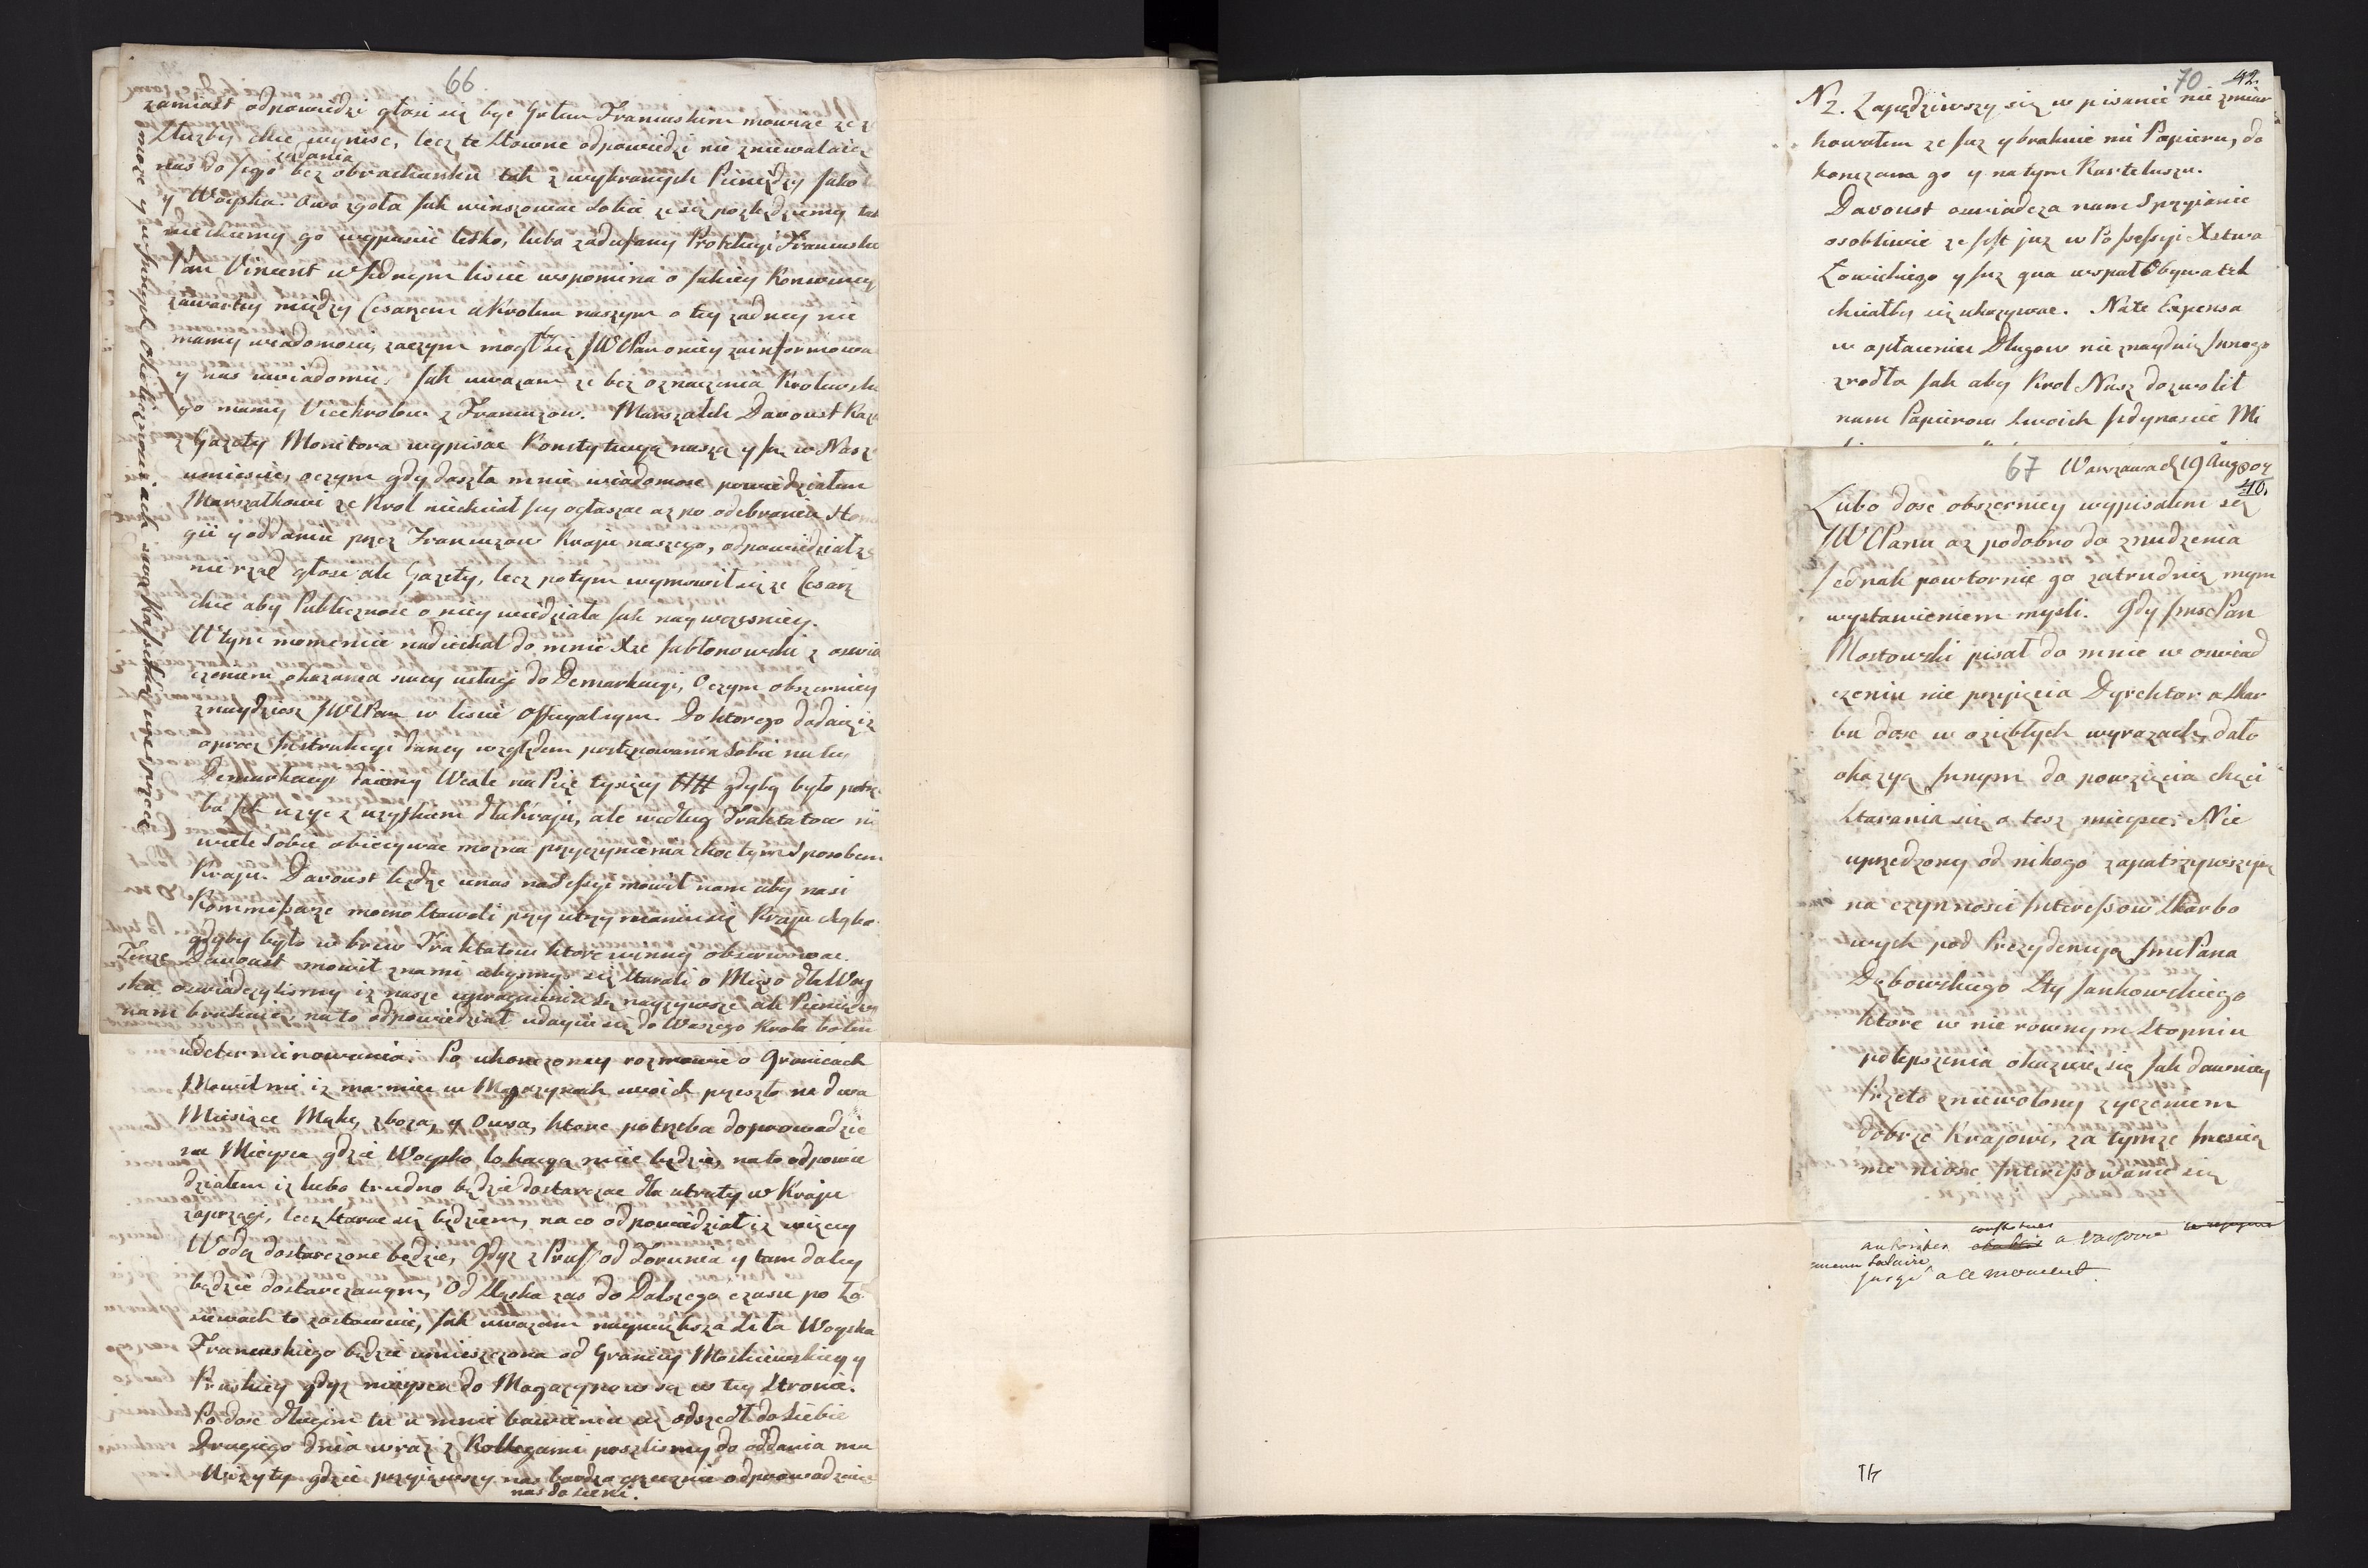 66.
zamiast odpowiedzi głosi się byc Grlem Francuskim mowiąc ze z
Służby chce wynisc, lecz te słowne odpowiedzi nie zniewalaią
żądania
nas do Jego bez obrachunku tak z wybranych Pieniędzy Jako
y Woyska. Owo zgoła Jak winszowac sobie ze się pozbędziemy tak
nie chcemy go wypuscic lekko, lubo zadufany Protekcyi Francuski
Pan Vincent w Jednym liscie wspomina o Jakiey Konwency
zawartey między Cesarzem a Krolem naszym o tey zadney nie
mamy wiadomosci, zaczym mogłby się JWWPan oniey zainformowa
y nas uwiadomic. Jak uwazam ze bez oznaczenia Krolewski
go mamy Vicekrolow z Francuzow. Marszałek Davoust Kaz
Gazety Monitora wypisac Konstytucyą naszą y Ju w Nasz
umiescic, oczym gdy doszła mnie wiadomosc powiedziałem
Marszałkowi ze Krol niechciał Jey ogłaszac az po odebraniu Hom
gii y oddaniu przez Francuzow Kraju naszego, odpowiedział ze
nie rząd głosi ale Gazety, lecz potym wymowił się ze Cesarz
chce aby Publicznosc o niey wiedziała Jak naywczesniey.
W tym momencie nadiechał do mnie Xze Jabłonowski z oswia
czeniem okazania swey usługi do Demarkacyi, Oczym obszerniey
znaydziesz JWWPan w liscie Officyalnym. Do ktorego dodaię iz
oprocz Instrukcyi daney względem postępowania sobie na tey
Demarkacyi daiemy Wexle na Pięc tysięcy ## gdyby było potrze
ba Ich uzyc z uzyskiem dla Kraju, ale według Traktatow ni
wiele sobie obiecywac mozna przyczynienia choc tym sposobem
Kraju. Davoust będąc unas na Sessyi mowił nam aby nasi
Kommissarze mocno stawali przy utrzymaniu się Kraju chyba
gdyby było w brew Traktatow ktore winny obserwowac.
Tenze Davoust mowił znami abysmy się starali o Mięso dla Woy
ska oswiadczylismy iz nasze upragnienia są nayzywsze ale Pieniędzy
nam brakuie, na to odpowiedział udaycie się do Waszego Krola bo ten
udeterminowania. Po ukonczoney rozmowie o Granicach
Mowił mi iz ma miec w Magazynach swoich przeszło na dwa
Miesiące Mąki, zboza, y Owsa, ktore potrzeba doprowadzic
na Mieysca gdzie Woysko lokacyą miec będzie, na to odpowie
działem iz lubo trudno będzie dostarczac dla utraty w Kraju
zaprzęgi, lecz starac się będziem, na co odpowiedział iz więcey
Wodą dostarczone będzie, Gdyz z Pruss od Torunia y tam daley
będzie dostarczanym, Od Sląska zas do Dalszego czasu po Za
siewach to zostawuie, Jak uwazam naywiększa Siła Woyska
Francuskiego będzie umieszczona od Granicy Moskiewskiey y
Pruskiey gdyz mieysca do Magazynow są w tey Stronie.
Po dosc długim tu u mnie bawieniu się odszedł do Siebie
Drugiego dnia wraz z Kollegami poszlismy do oddania mu
Wizyty gdzie przyiąwszy nas bardzo grzecznie odprowadzaiąc
nas do sieni.
moze y w Innych Okolicznosciach swą Kassetkę wesprzec
70 42.
N 2. Zapędziwszy się w pisanie nie zmiar
kowałem ze Juz ybraknie mi Papieru, do
konczam go y na tym Karteluszu.
Davoust oswiadcza nam Sprzyianie
osobliwie ze Jest juz w Possessyi Xstwa
Łowickiego y Juz qua wspoł Obywatel
chciałby się ukazywac. Na te Expensa
w opłaceniu Długow nie znayduię Innego
zrodła Jak aby Krol Nasz dozwolił
nam Papierow swoich Jedynascie Mi
67 Warszawa d 19 Aug 807
40.
Lubo dosc obszerniey wypisałem się
JWWPanu az podobno do znudzenia
Jednak powtornie go zatrudnię mym
wystawieniem mysli. Gdy JmscPan
Mostowski pisał do mnie w oswiad
czeniu nie przyięcia Dyrektora Skar
bu dosc w oziębłych wyrazach, dało
okazyą Innym do powzięcia chęci
starania się o tesz mieysce. Nie
uprzedzony od nikogo zapatrzywszy się
na czynnosci Interessow Skarbo
wych pod Prezydencyą JmciPana
Dębowskiego Czy Jankowskiego
ktore w nie rownym Stopniu
polepszenia okazuią się Jak dawniey
Przeto zniewolony zyczeniem
dobrze Krajowi, za tymze
nie niosę Interessowanie się
constituées
autorités etablis a Varsovie
aucun Salaire
jusqu'a ce moment.